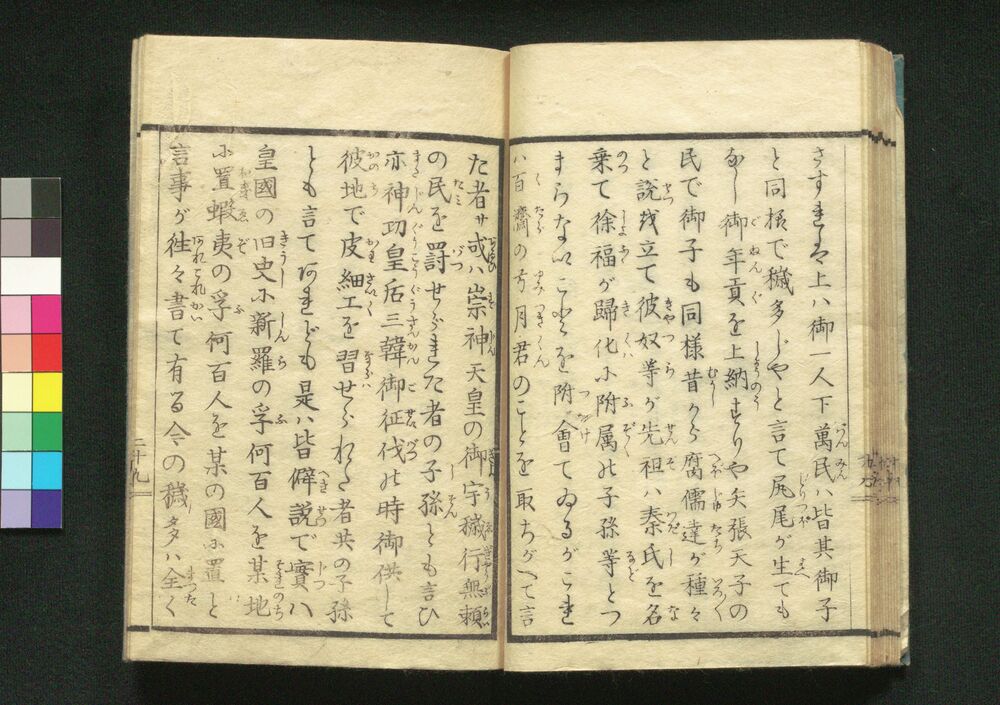 さすれば上ハ御一人下萬民ハ皆其御子
と同様で穢多じやと言て尻尾が生ても
なし御年貢を上納すりや矢張天子の
民で御子も同様昔から腐儒達が種々
と説を立て彼奴等が先祖ハ秦氏を名
乗て徐福が歸化に附属の子孫等とつ
まらないことを附會てゐるがこれ
ハ百齋の弓月君のことを取ちがへて言
た者サ或ハ崇神天皇の御宇穢行無頼
の民を罰せられた者の子孫とも言ひ
亦神功皇后三韓御征伐の時御供して
彼地で皮細工を習せられた者共の子孫
とも言てあれども是ハ皆僻説で實ハ
皇國の旧史に新羅の孚何百人を某地
に置蝦夷の孚何百人を某の國に置と
言事が往々書て有る今の穢多ハ全く
二十九